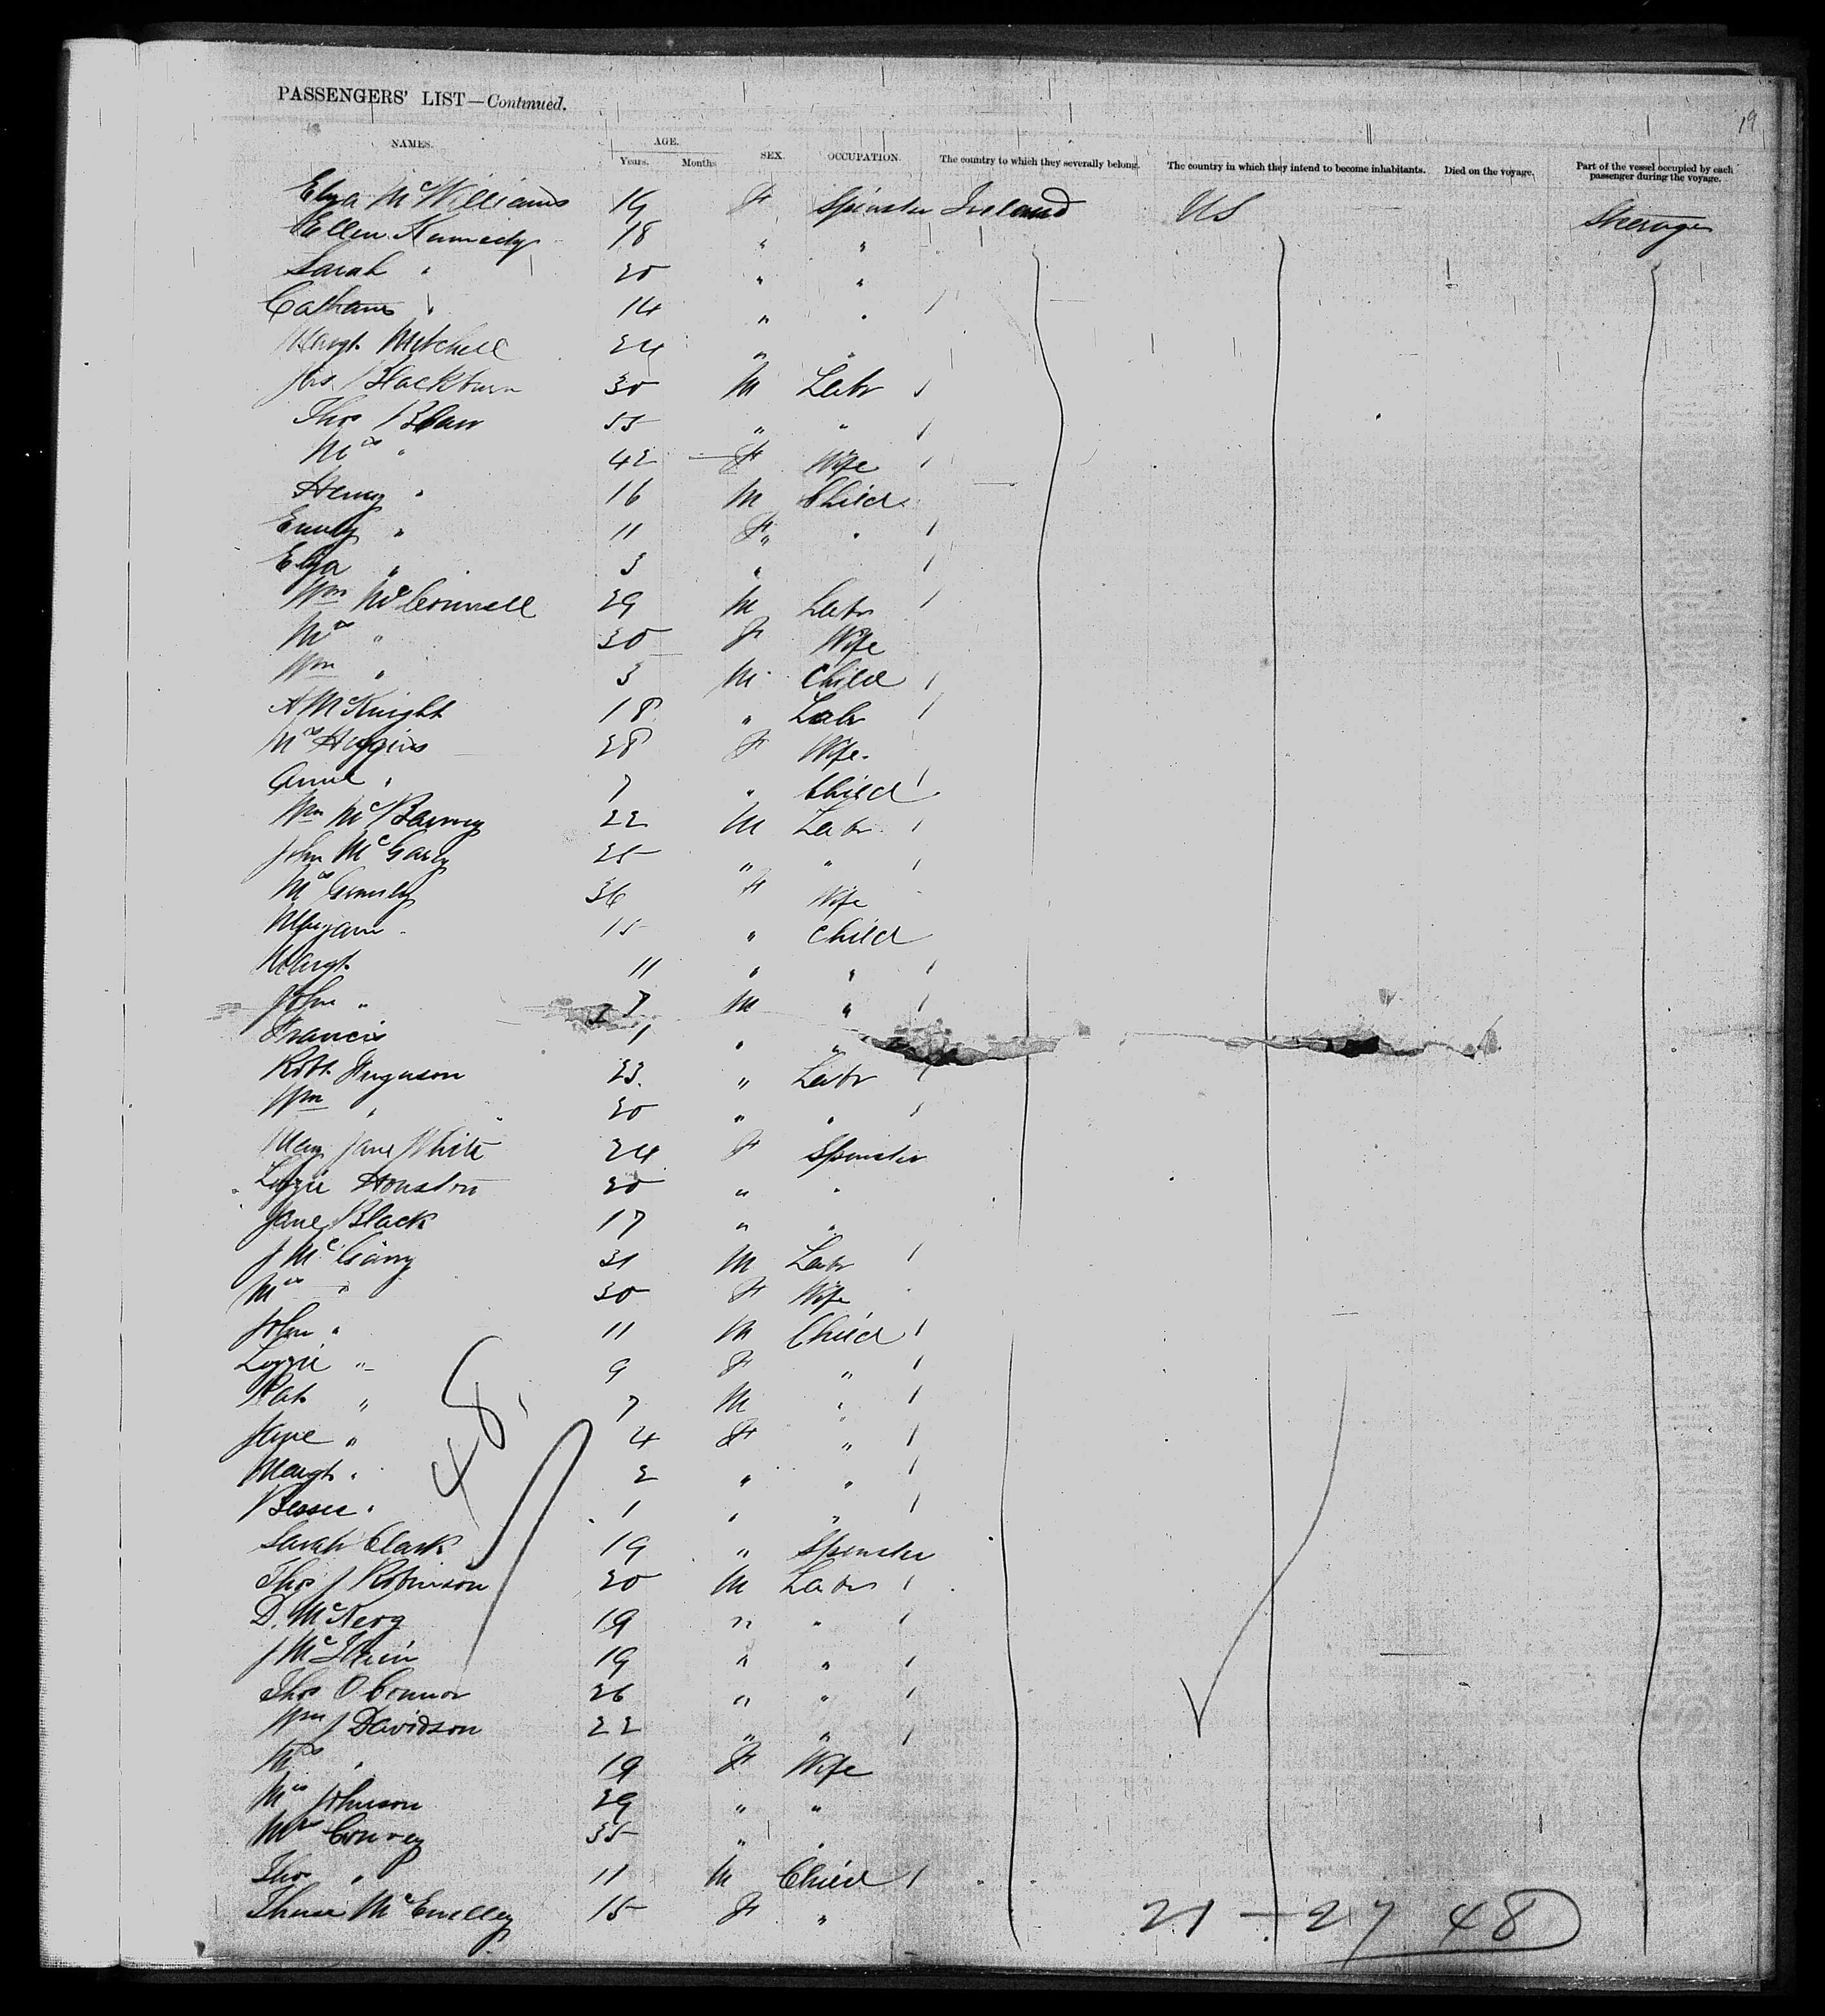 19
PASSENGERS' LIST—Continued.
NAMES. AGE. SEX. OCCUPATION. The country to which they severally belong. The country in which they intend to become inhabitants. Died on the voyage. Part of the vessel occupied by each passenger during the voyage.
Years. Months
Eliza McWilliams 19 F Spinster Ireland US Steerage
Ellen Kennedy 18 " "
Sarah " 20 " "
" 14 " "
Margt Mitchell 24 " "
Jas Blackburn 30 M Labr
Thos 55 " "
Mrs " 42 F Wife
Henry " 16 M Child
Emily " 11 F "
Eliza " 3 "
Wm McConnell 29 M Labr
Mrs " 30 F Wife
Wm " 3 M Child
A McKnight 18 " Labr
Mrs Huggins 28 F Wife
Annie " 7 " Child
Wm McBarney 22 M Labr
John McGarey 25 " "
Mrs 36 F Wife
15 " Child
Margt 11 " "
John " 7 M "
Francis 1 " "
Robt Ferguson 23 " Labr
Wm " 20 " "
Mary Jane White 24 F Spinster
Lizzie Houston 20 " "
Jane Black 17 " "
J 31 M Labr
Mrs " 30 F Wife
John " 11 M Child
Lizzie " 9 F "
Pat " 7 M "
Jane " 4 F "
Margt " 2 " "
Bessie " 1 " "
Sarah Clark 19 " Spinster
Thos J Robinson 20 M Labr
D. 19 " "
J 19 " "
Thos OConnor 26 " "
Wm J Davidson 22 " "
Mrs " 19 F Wife
Mrs Johnson 29 " "
Mrs Convey 35 " "
Thos " 11 M Child
15 F "
48
21 – 27 48